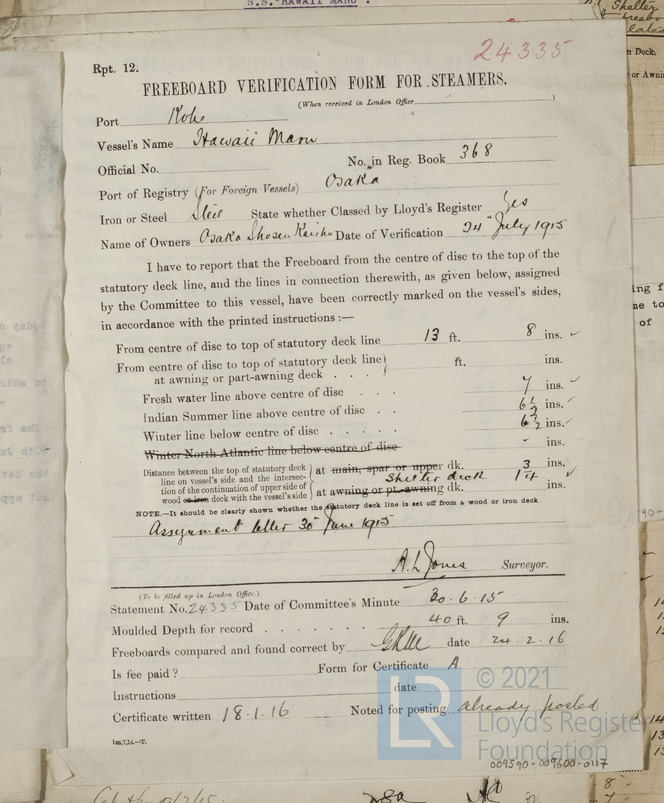 S.S. "HAWAII MARU".
24335
Rpt. 12.
FREEBOARD VERIFICATION FORM FOR STEAMERS.
(When received in London Office )
Port Kobe
Vessel's Name Hawaii Maru
Official No. No. in Reg. Book 368
Port of Registry (For Foreign Vessels) Osaka
Iron or Steel Steel State whether Classed by Lloyd's Register Yes
Name of Owners Osaka Shosen Kaisha Date of Verification 24th July 1915
I have to report that the Freeboard from the centre of disc to the top of the
statutory deck line, and the lines in connection therewith, as given below, assigned
by the Committee to this vessel, have been correctly marked on the vessel's sides,
in accordance with the printed instructions :—
From centre of disc to top of statutory deck line 13 ft. 8 ins. ✓
From centre of disc to top of statutory deck line ft. ins.
at awning or part-awning deck . . .
Fresh water line above centre of disc . . . 7 ins. ✓
Indian Summer line above centre of disc . . 6½ ins. ✓
Winter line below centre of disc . . 6½ ins. ✓
Winter North Atlantic line below centre of disc - ins.
Distance between the top of statutory deck
line on vessel's side and the intersec-
tion of the continuation of upper side of
wood or iron deck with the vessel's side
at main, spar or upper dk. 3 ins.
Shelter deck 1¼ ✓
at awning or pt.-awning dk. ins.
NOTE.—It should be clearly shown whether the statutory deck line is set off from a wood or iron deck.
Assignment letter 30th June 1915
A. L. Jones Surveyor.
(To be filled up in London Office.)
Statement No. 24335 Date of Committee's Minute 30.6.15
Moulded Depth for record . . . . . . . 40 ft. 9 ins.
Freeboards compared and found correct by date 24.2.16
Is fee paid? Form for Certificate A
Instructions date
Certificate written 18.1.16 Noted for posting already posted
1m,7,14.—T.
© 2021
LR
Lloyd's Register
Foundation
009590-009600-0117